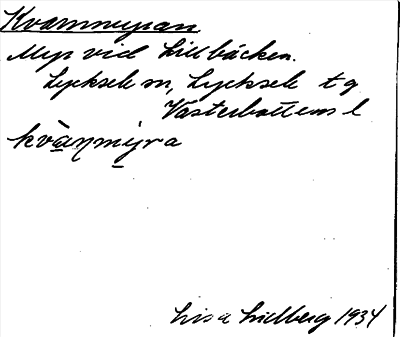 Kvarnmyran
Myr vid Lillbäcken.
Lycksele sn, Lycksele tg
Västerbottens l
kvàɳmýra
Lisa Lidberg 1934